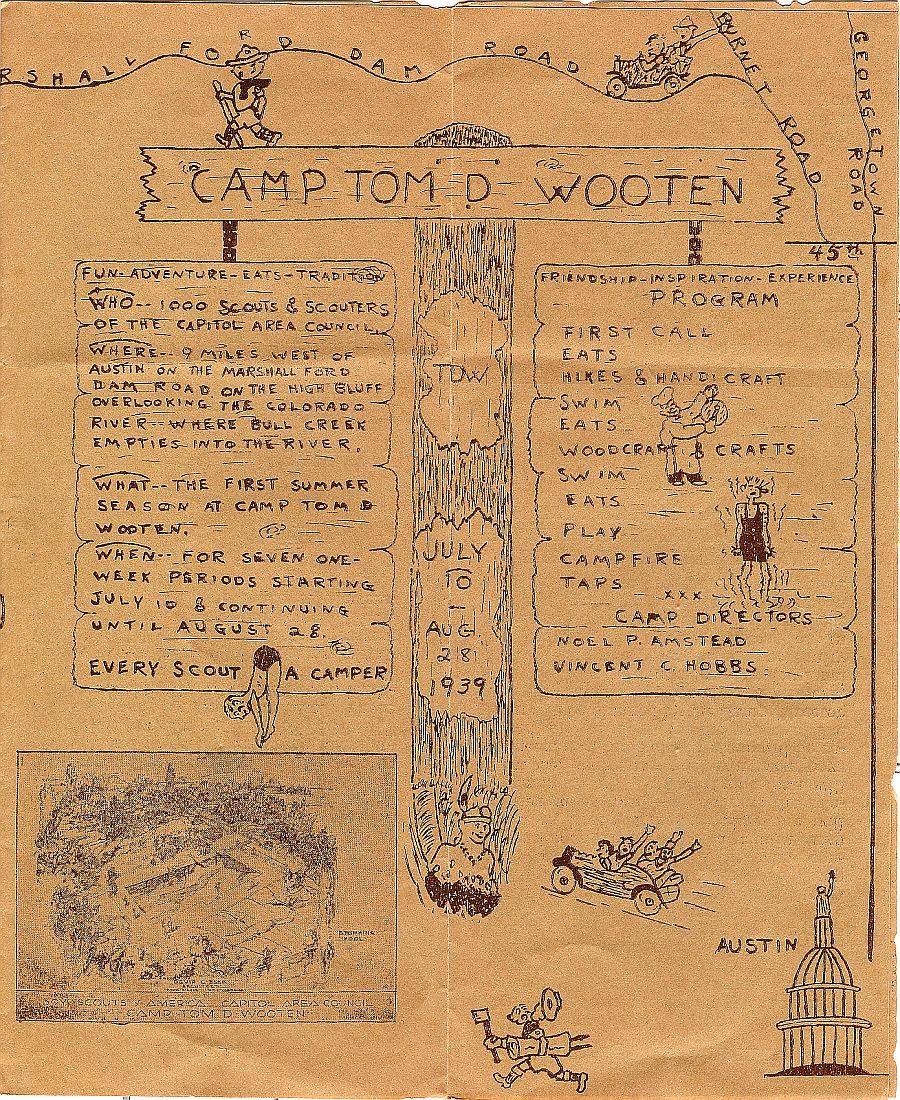 RSHALL FORD DAM ROAD
BURNET ROAD
GEORGETOWN ROAD
45th
CAMP TOM D. WOOTEN
FUN-ADVENTURE-EATS-TRADITION
WHO-- 1000 SCOUTS & SCOUTERS
OF THE CAPITOL AREA COUNCIL.
WHERE-- 9 MILES WEST OF
AUSTIN ON THE MARSHALL FORD
DAM ROAD ON THE HIGH BLUFF
OVERLOOKING THE COLORADO
RIVER--WHERE BULL CREEK
EMPTIES INTO THE RIVER.
WHAT--THE FIRST SUMMER
SEASON AT CAMP TOM D
WOOTEN.
WHEN-- FOR SEVEN ONE-
WEEK PERIODS STARTING
JULY 10 & CONTINUING
UNTIL AUGUST 28.
EVERY SCOUT A CAMPER
TDW
JULY
10
-
AUG.
28
1939
FRIENDSHIP-INSPIRATION-EXPERIENCE
PROGRAM
FIRST CALL
EATS
HIKES & HANDICRAFT
SWIM
EATS
WOODCRAFT & CRAFTS
SWIM
EATS
PLAY
CAMPFIRE
TAPS
XXX
CAMP DIRECTORS
NOEL P. AMSTEAD
VINCENT C. HOBBS.
SWIMMING
POOL
BOY SCOUTS of AMERICA CAPITOL AREA COUNCIL
"CAMP TOM D WOOTEN"
AUSTIN